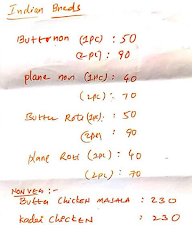 Indian Breds
Butter non (1pc) : 50
(2pc) : 90
plane non (1pc) : 40
(2pc) : 70
Butter Roti (1pc) : 50
(2pc) 90
plane Roti (1pc) : 40
(2pc) : 70
NON VEG :-
Butter Chicken MASALA : 230
Kadai CHICKEN : 230